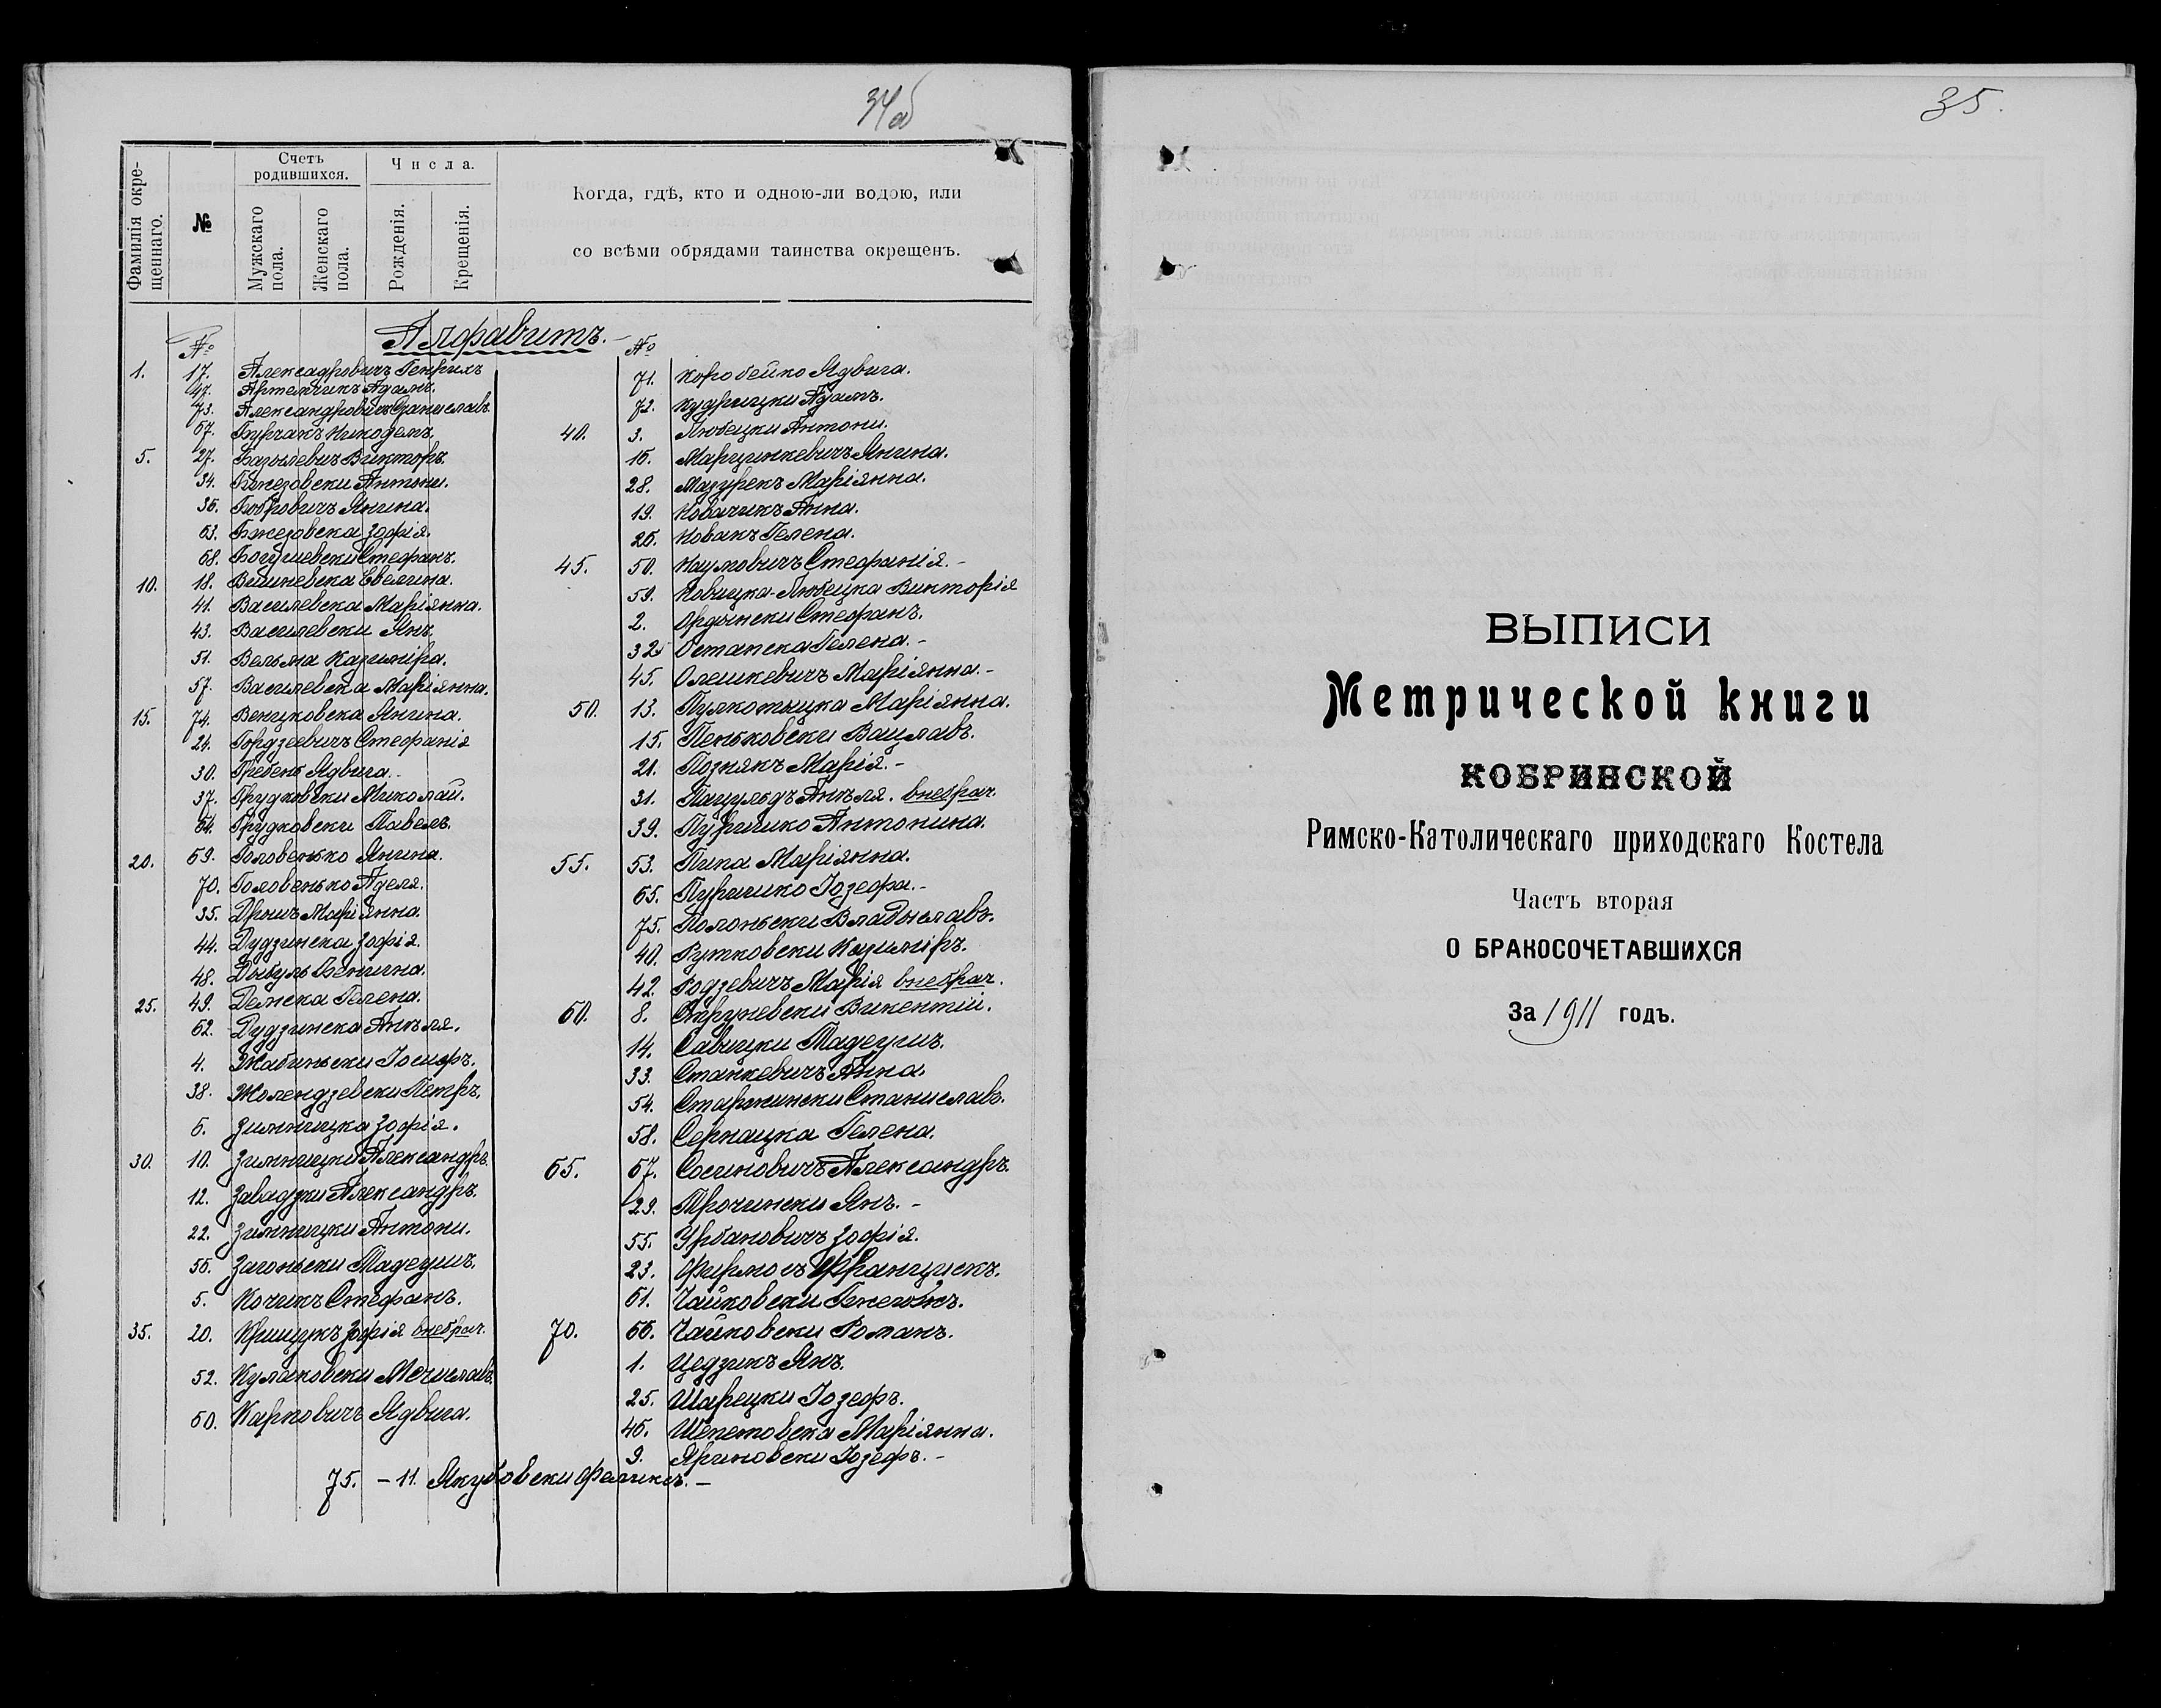 34об
Фамилія окрещеннаго.
№
Счетъ родившихся.
Мужскаго пола.
Женскаго пола.
Числа.
Рожденія.
Крещенія.
Когда, гдѣ, кто и одною-ли водою, или
со всѣми обрядами таинства окрещенъ.
Алфавитъ.
№
1. 17. Алексадровичъ Генрихъ
47. Артемчикъ Адамъ.
73. Александровичъ Станиславъ
67. Бурчакъ Никодемъ.
5. 27. Базылевичъ Викторъ.
34. Бжезовски Антони.
36. Бобровичъ Янина.
63. Бжезовска Зофія.
68. Богушевски Стефанъ.
10. 18. Вишневска Евелина.
41. Василевска Маріянна.
43. Василевски Янъ
51. Вельма Казиміра.
57. Василевска Маріянна.
15. 74. Венцковска Янина.
24. Гордзеевичъ Стефанія
30. Гребень Ядвига.
37. Грудковски Миколай.
64. Грудковски Павелъ.
20. 69. Головенько Янина.
70. Головенько Аделя.
35. Дрышъ Маріянна.
44. Дудзинска Зофія.
48. Дыбуль Янина.
25. 49. Демска Гелена.
62. Дудзинска Анѣля.
4. Жабиньски Іосифъ.
38. Жолендзевски Петръ.
6. Зимницка Зофія.
30. 10. Зимницки Александръ.
12. Завадзки Александръ.
22. Зимницки Антони.
56. Загоньски Тадеушъ.
5. Кочикъ Стефанъ.
35. 20. Крищукъ Зофія внебрач.
52. Кулаковски Мечиславъ.
60. Карповичъ Ядвига.
№
71. Коробейко Ядвига.
72. Кудрицки Адамъ.
40. 3. Любецки Антони.
16. Марцинкевичъ Янина.
28. Мазурекъ Маріянна.
19. Новачикъ Анна.
26. Новакъ Гелена.
45. 50. Наумовичъ Стефанія.-
59. Новицка-Любецка Викторія
2. Ордыньски Стефанъ.
32. Остапска Гелена.-
45. Олешкевичъ Маріянна.-
50. 13. Пулкотыцка Маріянна.
15. Пеньковски Вацлавъ.
21. Познякъ Марія.-
31. Пацульдъ Анѣля. внебрач.
39. Пуришко Антонина.
55. 53. Пипа Маріянна.
65. Пуришко Іозефа.-
75. Полоньски Владыславъ.
40. Рутковски Казиміръ.
42. Родзевичъ Марія внебрач.
60. 8. Скруневски Викентій.
14. Савицки Тадеушъ.
33. Станкевичъ Анна.
54. Старжински Станиславъ.
58. Серпацка Гелена.
65. 67. Сосиновичъ Александръ.
29. Трочински Янъ.-
55. Урбановичъ Зофія.
23. Фирмосъ Францискъ.
61. Чайковски Генегинъ.
70. 66. Чайковски Романъ.
1. Цедзикъ Янъ.
25. Шарецки Іозефъ.
46. Шепетовска Маріянна.
9. Яриновски Іозефъ.-
75. -11. Якубовски Феликсъ.-
35.
ВЫПИСИ
Метрической книги
КОБРИНСКОЙ
Римско-Католическаго приходскаго Костела
Часть вторая
О БРАКОСОЧЕТАВШИХСЯ
За 1911 годъ.